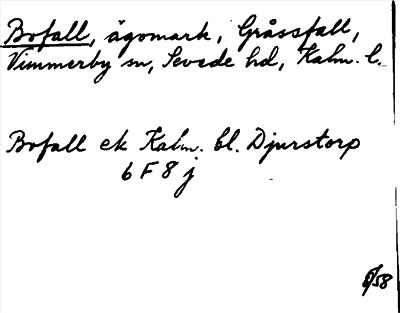 Bofall, ägomark, Gråssfall,
Vimmerby sn, Sevede hd, Kalm. l.
Bofall ek Kalm. bl. Djurstorp
6 F 8 j